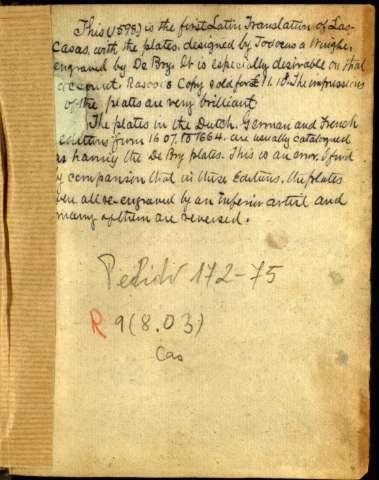 This (1598) is the first Latin Translation of Las-
Casas, with the plates, designed by Jodocus a Winghe,
engraved by De Bry. It is especially desirable on that
account. Copy sold for £11.10s. The impressions
of the plates are very brilliant
The plates in the Dutch, German and French
editions from 1607 to 1664 are usually catalogued
as having the De Bry plates. This is an error. I find
by comparison that in these Editions, the plates
were all re-engraved by an inferior artist and
many of them are reversed.
Pedido 172-75
R 9(8.03)
Cas